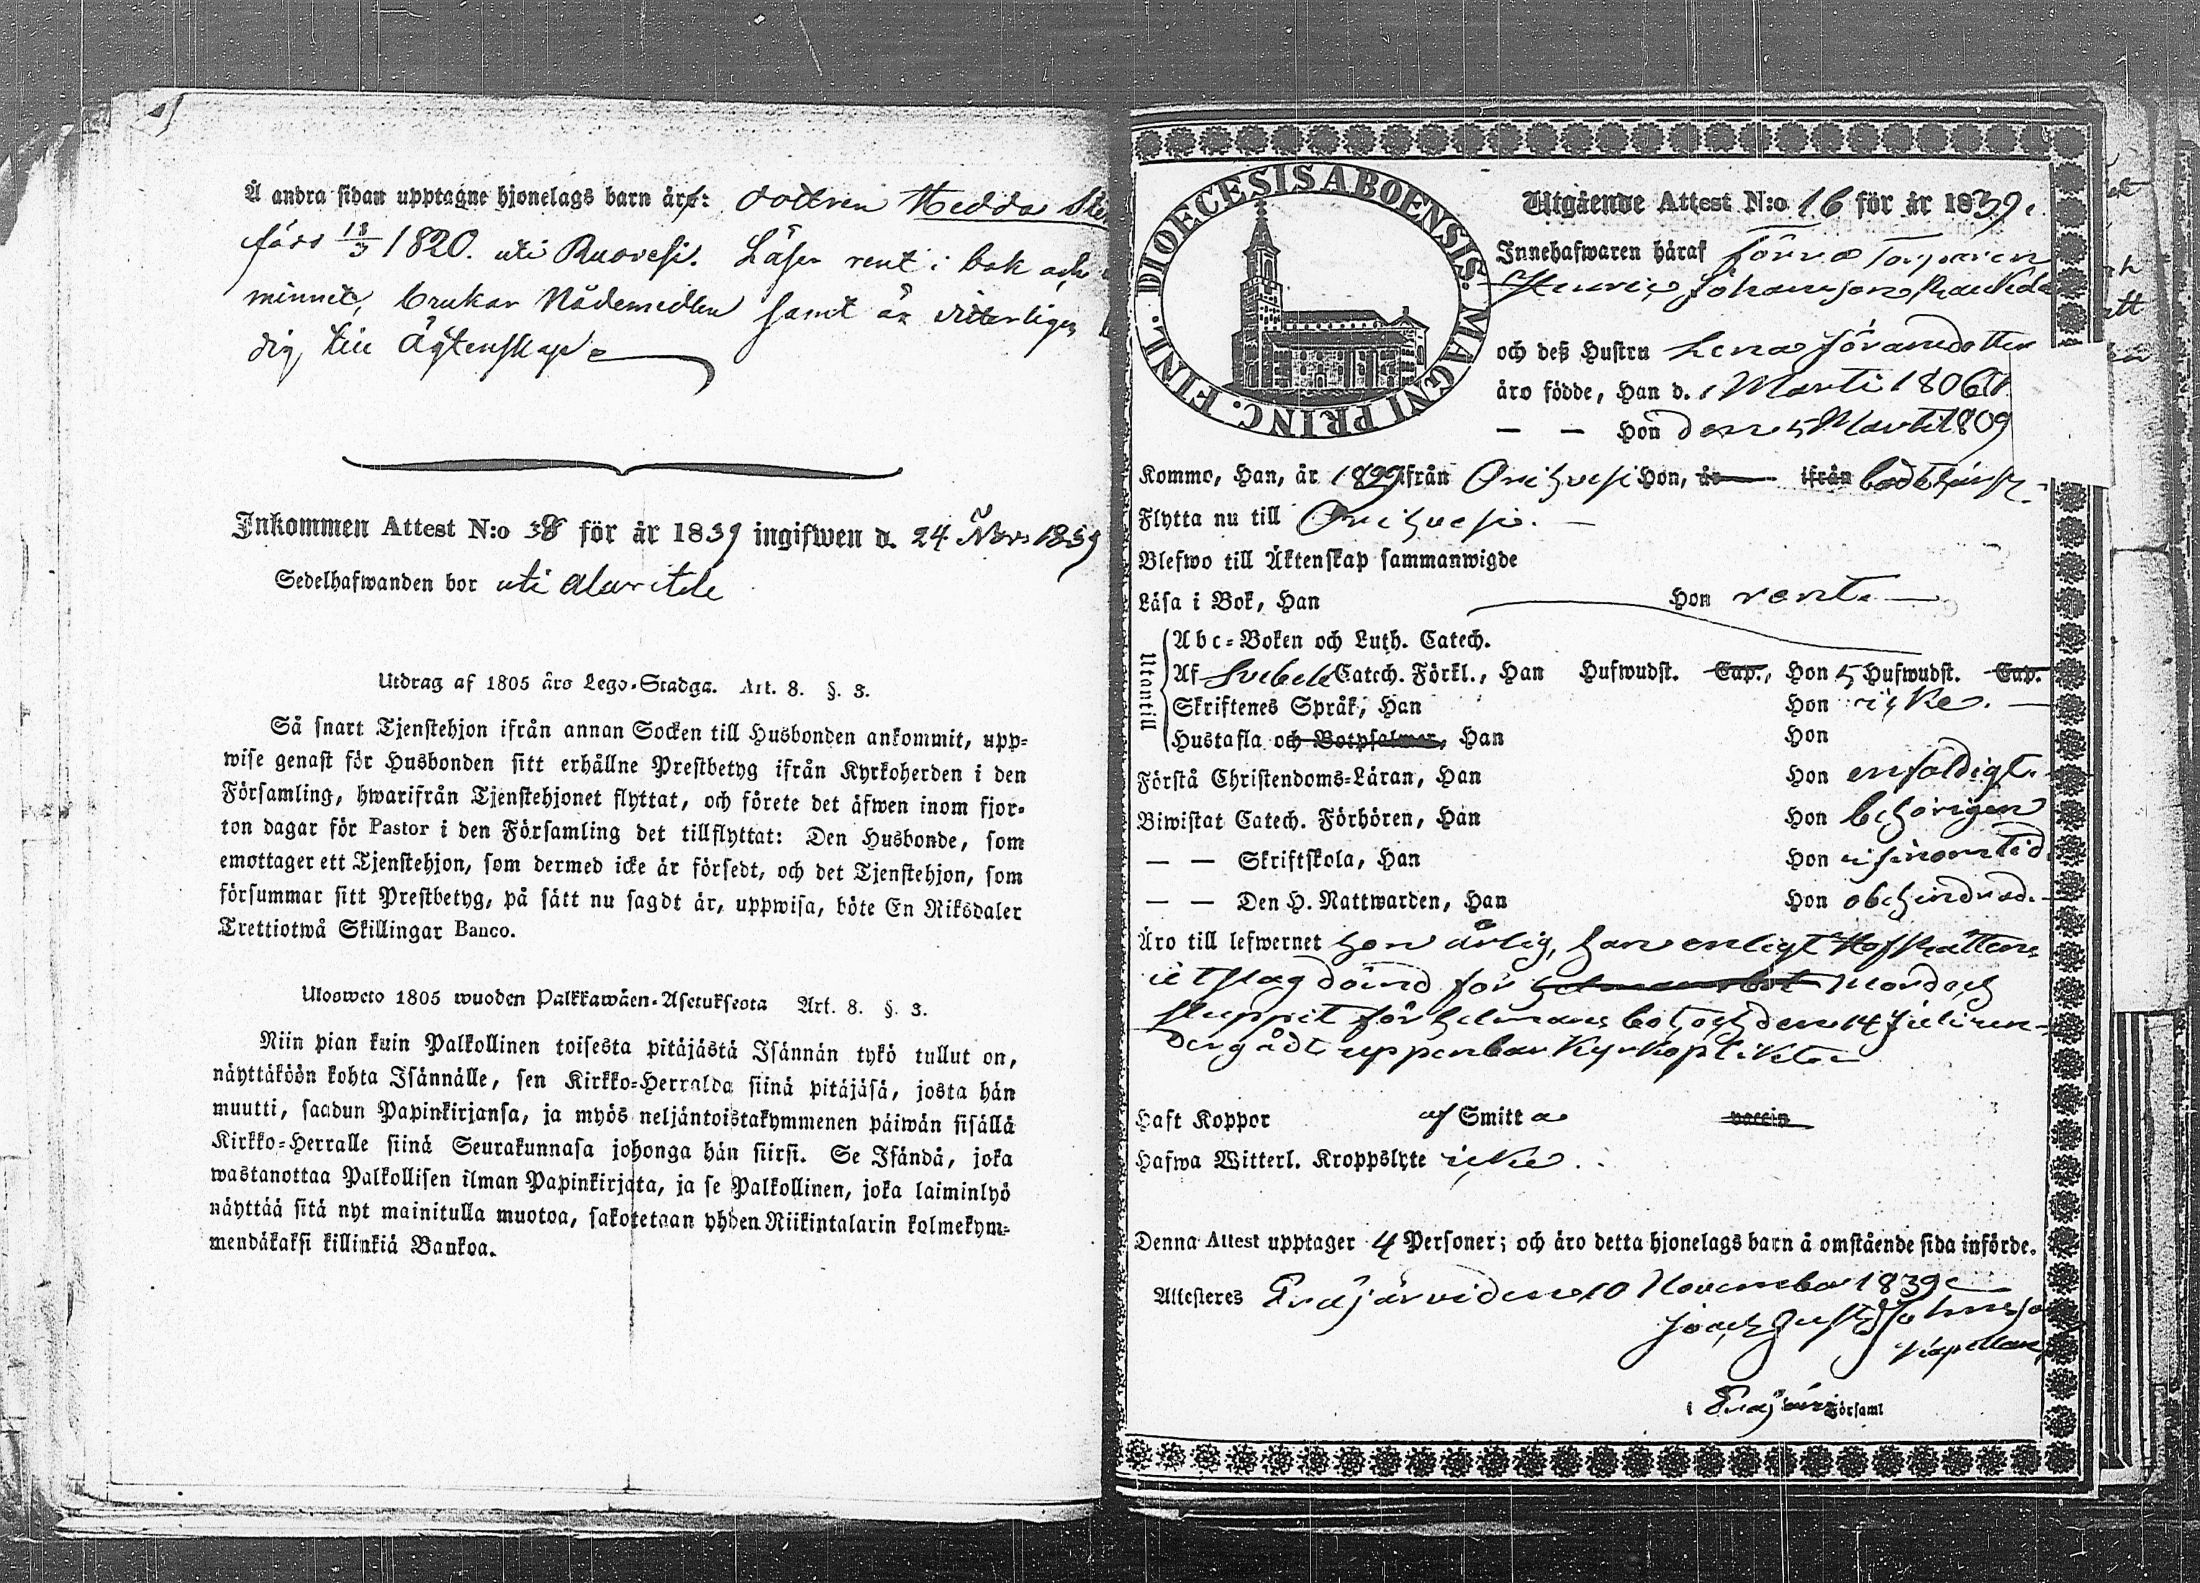 Å andra sidan upptagne hjonelags barn är: dottren Hedda
född 18/3 1820. uti Ruovesi. Läser rent i bok och
minnet, brukar Nådemedlen samt är vitterligen
dig till Ägtenskap
Inkommen Attest N:o 38 för år 1839 ingifwen d. 24 Nov 1839
Sedelhafwanden bor uti
Utdrag af 1805 års Lego-Stadga. Art. 8. §. 3.
Så snart Tjenstehjon ifrån annan Socken till Husbonden ankommit, upp-
wise genast för Husbonden sitt erhållne Prestbetyg ifrån Kyrkoherden i den
Församling, hwarifrån Tjenstehjonet flyttat, och förete det äfwen inom fjor-
ton dagar för Pastor i den Församling det tillflyttat: Den Husbonde, som
emottager ett Tjenstehjon, som dermed icke är försedt, och det Tjenstehjon, som
försummar sitt Prestbetyg, på sätt nu sagdt är, uppwisa, böte En Riksdaler
Trettiotwå Skillingar Banco.
Ulosweto 1805 wuoden Palkkawäen-Asetuksesta Art. 8. §. 3.
Niin pian kuin Palkollinen toisesta pitäjästä Isännän tykö tullut on,
näyttäköön kohta Isännälle, sen Kirkko-Herralda siinä pitäjäsä, josta hän
muutti, saadun Papinkirjansa, ja myös neljäntoistakymmenen päiwän sisällä
Kirkko-Herralle siinä Seurakunnasa johonga hän siirsi. Se Isändä, joka
wastanottaa Palkollisen ilman Papinkirjata, ja se Palkollinen, joka laiminlyö
näyttää sitä nyt mainitulla muotoa, sakotetaan yhden Riikintalarin kolmekym-
mendäkaksi killinkiä Bankoa.
DIOECESIS ABOENSIS. MAGNI PRINC. FINL.
Utgående Attest N:o 16 för år 1839.
Innehafwaren häraf förra Torparen
Henric Johansson
och deß Hustru Lena Göransdotter
äro födde, Han d. 1 Marti 1806
— — Hon den 5 Marti 1809
Komme, Han, år ifrån Orihvesi Hon, år ifrån
Flytta nu till Orihvesi.
Blefwo till Äktenskap sammanwigde
Läsa i Bok, Han Hon rent.
Utantill
Abc-Boken och Luth. Catech.
Af Svebeli Catech. Förkl., Han Hufwudst. Cap., Hon 5 Hufwudst. Cap.
Skriftenes Språk, Han Hon icke.
Hustafla och Botpsalmer, Han Hon
Förstå Christendoms-Läran, Han Hon enfaldigt.
Biwistat Catech. Förhören, Han Hon behörigen
— — Skriftskola, Han Hon
— — Den H. Nattwarden, Han Hon obehindrad.
Äro till lefwernet hon ärlig, han enligt Hofrättens
utslag dömd för Mord och
sluppit för helmans bot och den 14 Juli un-
dergådt uppenbar Kyrkoplikt
Haft Koppor af Smitta vaccin
Hafwa Witterl. Kroppslyte icke.
Denna Attest upptager 4 Personer; och äro detta hjonelags barn å omstående sida införde.
Attesteras Eräjärvi den 10 November 1839
Kapellan
i Eräjärvi Församl